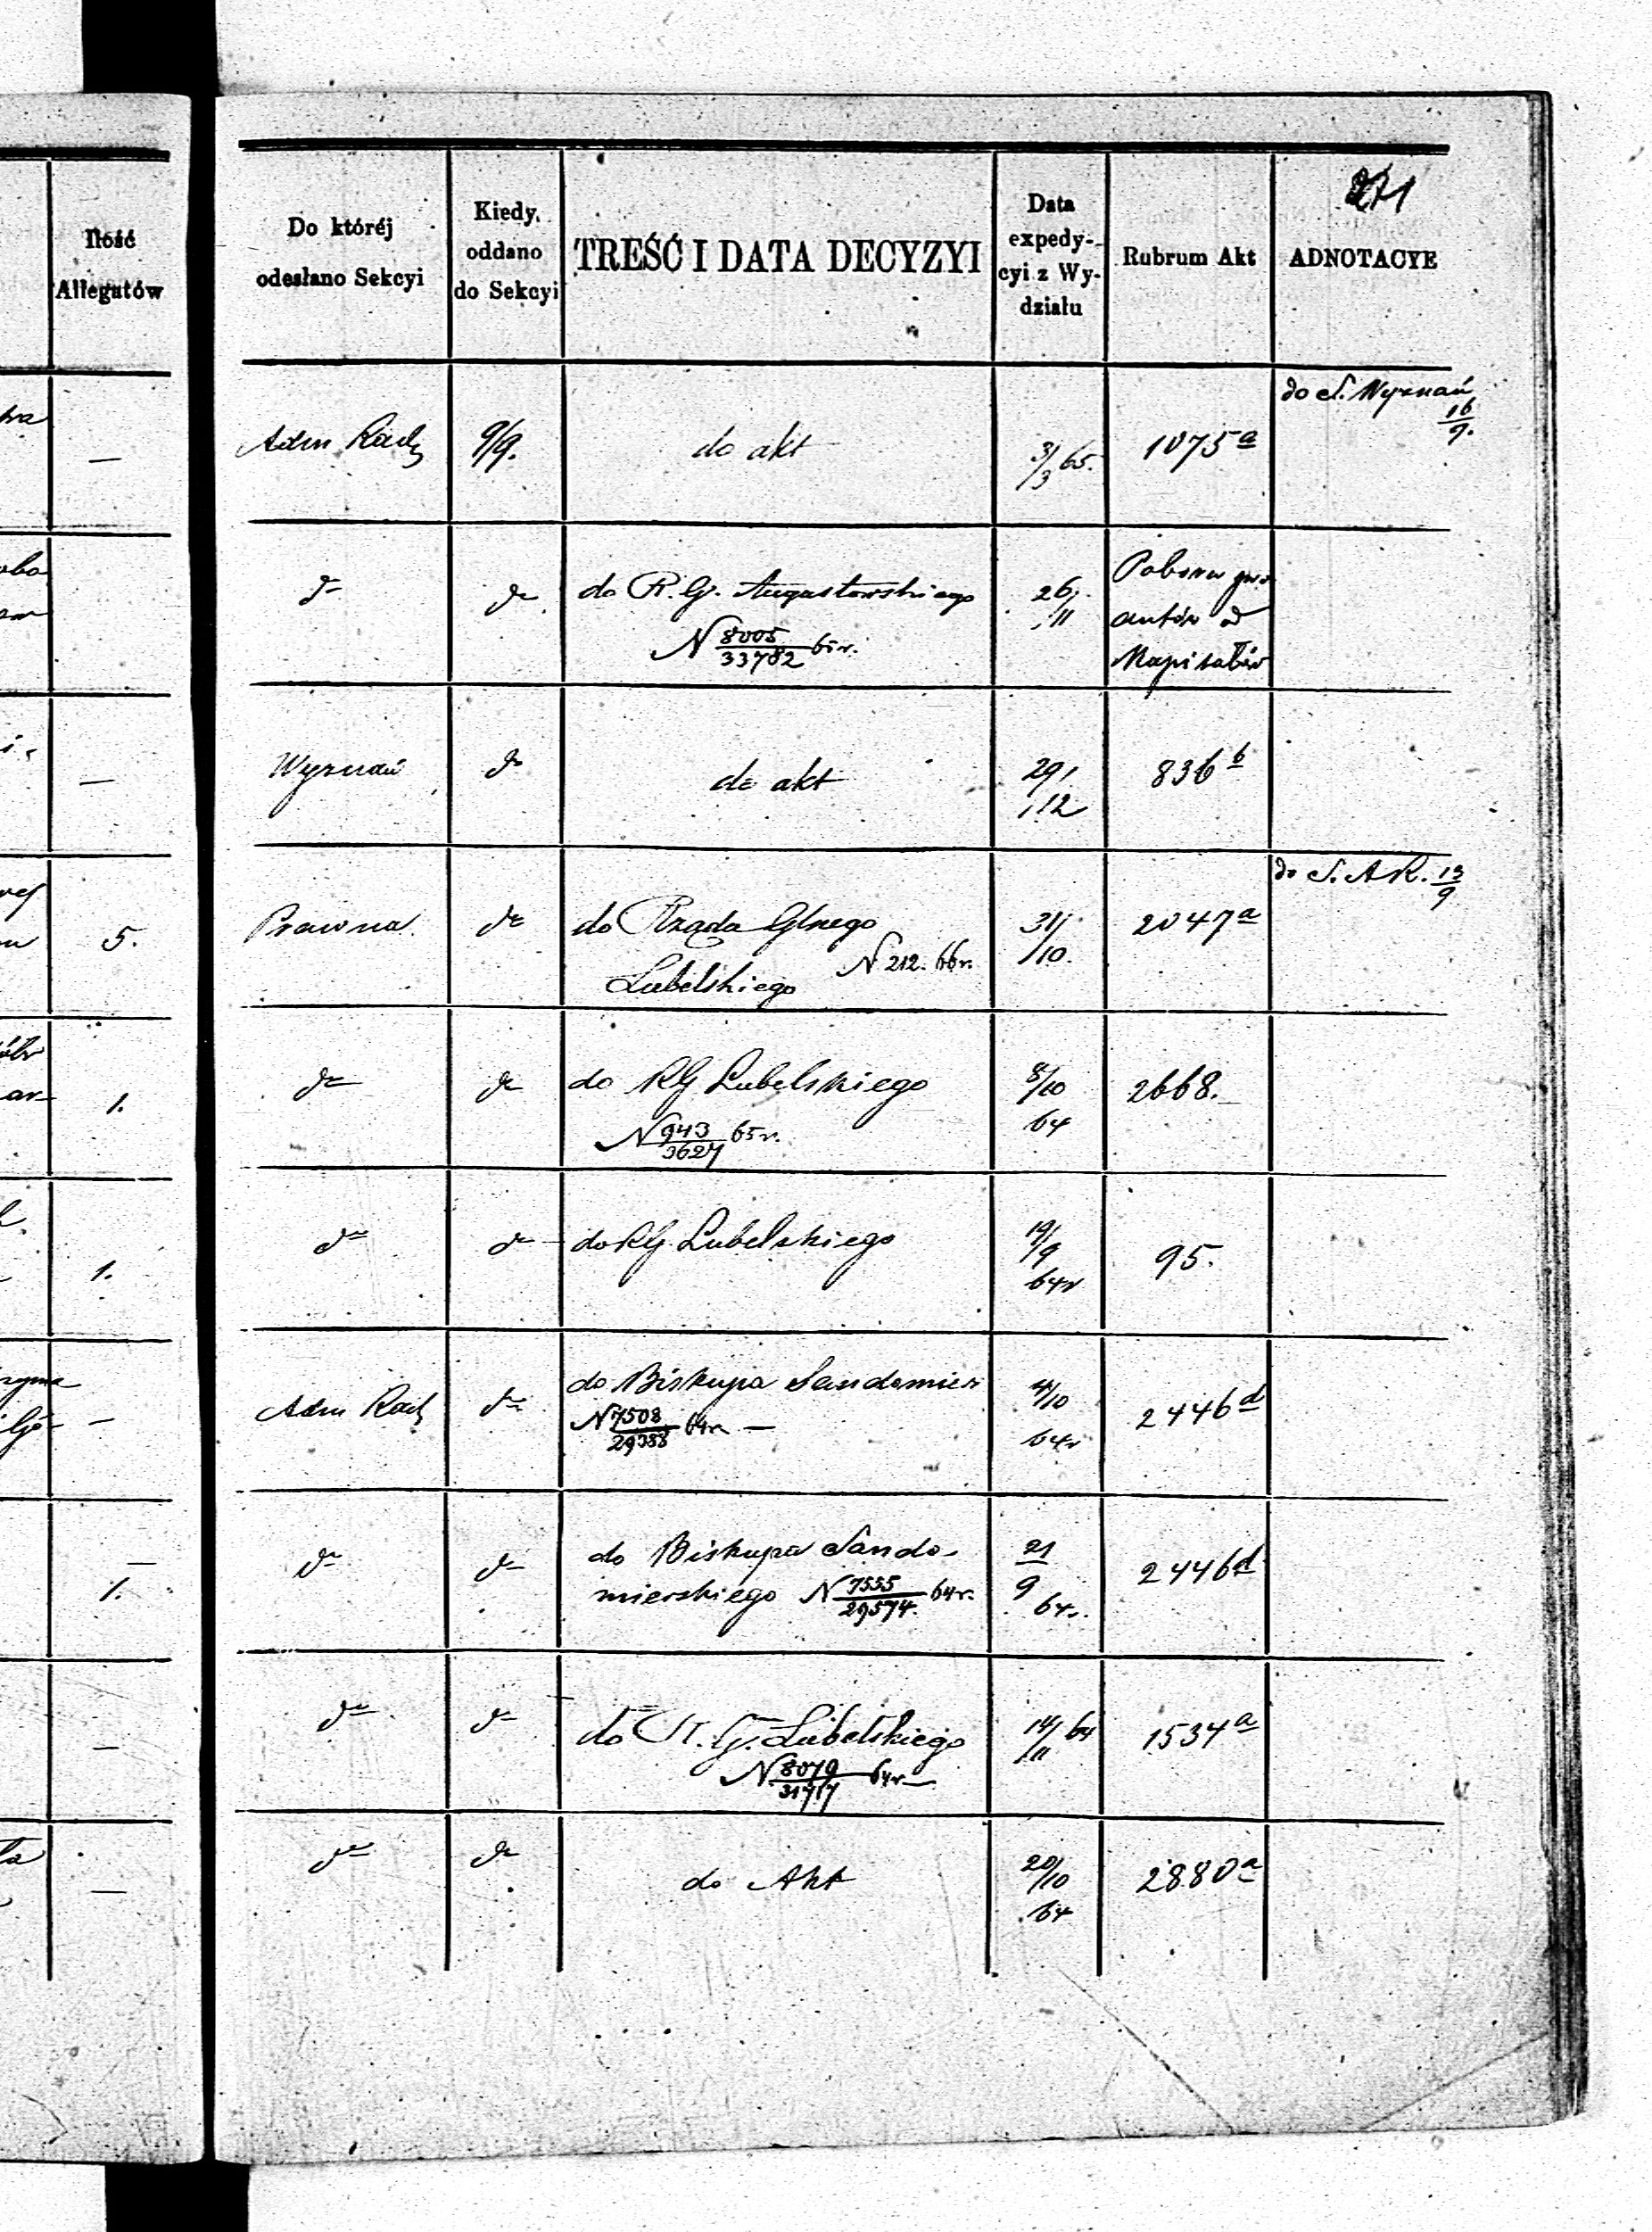 271
Ilość
Allegatów
Do któréj
odesłano Sekcyi
Kiedy
oddano
do Sekcyi
TREŚĆ I DATA DECYZYI
Data
expedy-
cyi z Wy-
działu
Rubrum Akt
ADNOTACYE
—
Adm Rach
9/9.
do akt
3/3 65.
1075 a
do S. Wyznań
16/9.
do
do
do R. G. Augustowskiego
N 8005/33782 65 r.
26/11
Poboru
od
Kapitałów
—
Wyznań
do
do akt
29/12
836 b
5.
Prawna
do
do Rządu Glnego
N 212. 66 r.
Lubelskiego
31/10.
2047 a
do S. A R. 13/9
1.
do
do
do RG Lubelskiego
N 943/3627 65 r.
8/10
64
2668.
1.
do
do
do RG. Lubelskiego
19/9
64 r
95.
—
Adm Rach
do
do Biskupa Sandomier
N 7508/29388 64 r. —
4/10
64 r
2446 d
—
1.
do
do
do Biskupa Sando-
mierskiego N 7555/29574. 64 r.
21/9
64 r.
2446 d
—
do
do
do R. G. Lubelskiego
N 8079/31717 64 r —
14/11 64
1534 a
—
do
do
do Akt
20/10
64
2880 a